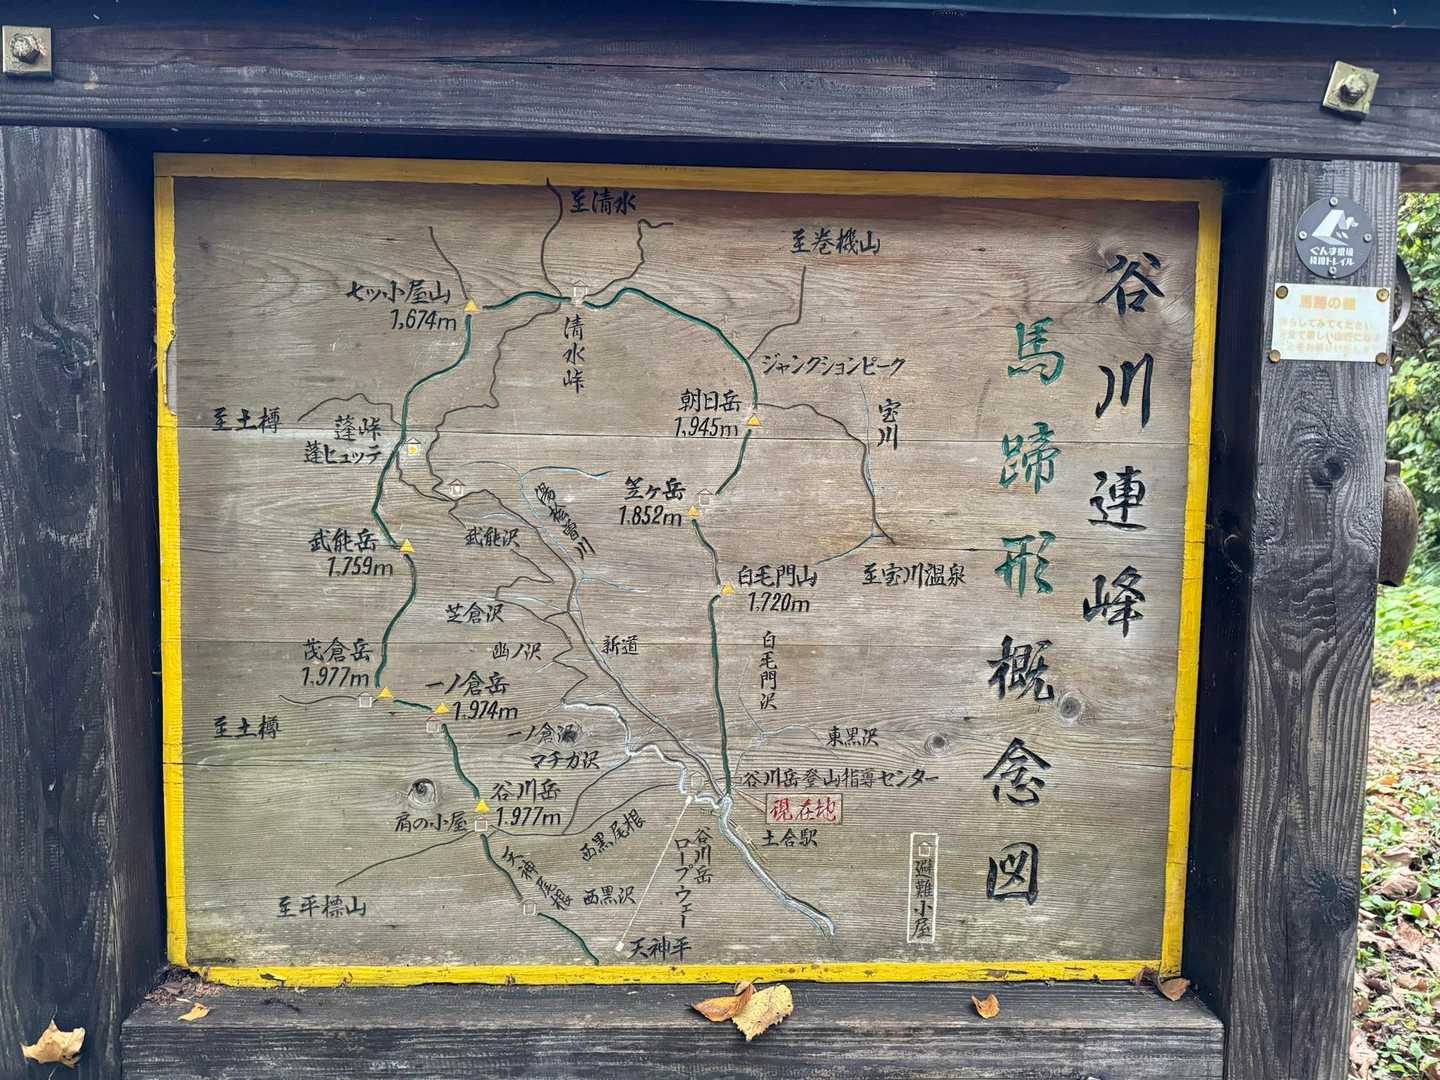 谷川連峰
馬蹄形概念図
至清水
至巻機山
七ッ小屋山
1,674m
清水峠
ジャンクションピーク
朝日岳
1,945m
宝川
至土樽
蓬峠
蓬ヒュッテ
笠ヶ岳
1,852m
湯桧曽川
武能沢
武能岳
1,759m
白毛門山
1,720m
至宝川温泉
芝倉沢
幽ノ沢
新道
白毛門沢
茂倉岳
1,977m
一ノ倉岳
1,974m
至土樽
一ノ倉沢
マチガ沢
東黒沢
谷川岳登山指導センター
現在地
土合駅
谷川岳
1,977m
肩の小屋
西黒尾根
谷川岳
ロープウェー
天神尾根
西黒沢
至平標山
天神平
避難小屋
ぐんま県境
稜線トレイル
馬蹄の鐘